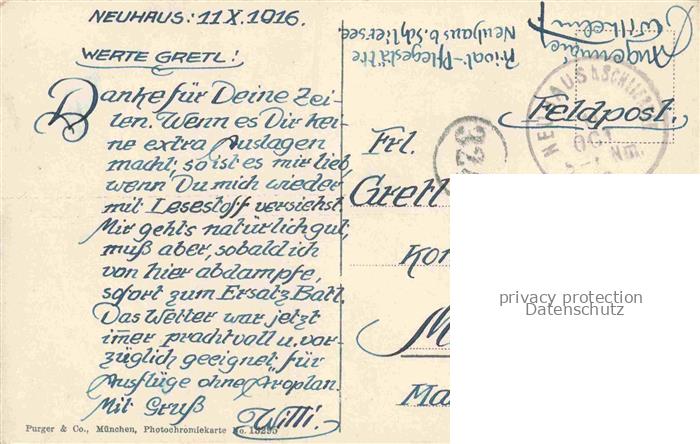 NEUHAUS: 11 X. 1916.
WERTE GRETL!
Danke für Deine Zei-
len. Wenn es Dir kei-
ne extra Auslagen
macht, so ist es mir lieb,
wenn Du mich wieder
mit Lesestoff versiehst.
Mir geht's natürlich gut,
muß aber, sobald ich
von hier abdampfe,
sofort zum Ersatz Batl.
Das Wetter war jetzt
im̅er prachtvoll u. vor-
züglich geeignet „für
Ausflüge ohne Aroplan.
Mit Gruß
Willi.
Purger & Co., München, Photochromiekarte No. 13295
Wilhelm
Privat-Pflegestätte
Neuhaus b. Schliersee.
NEUHAUS b. SCHLIERSEE
OKT
Nm.
Feldpost.
Frl.
Gretl
Kon
M
Ma
privacy protection
Datenschutz